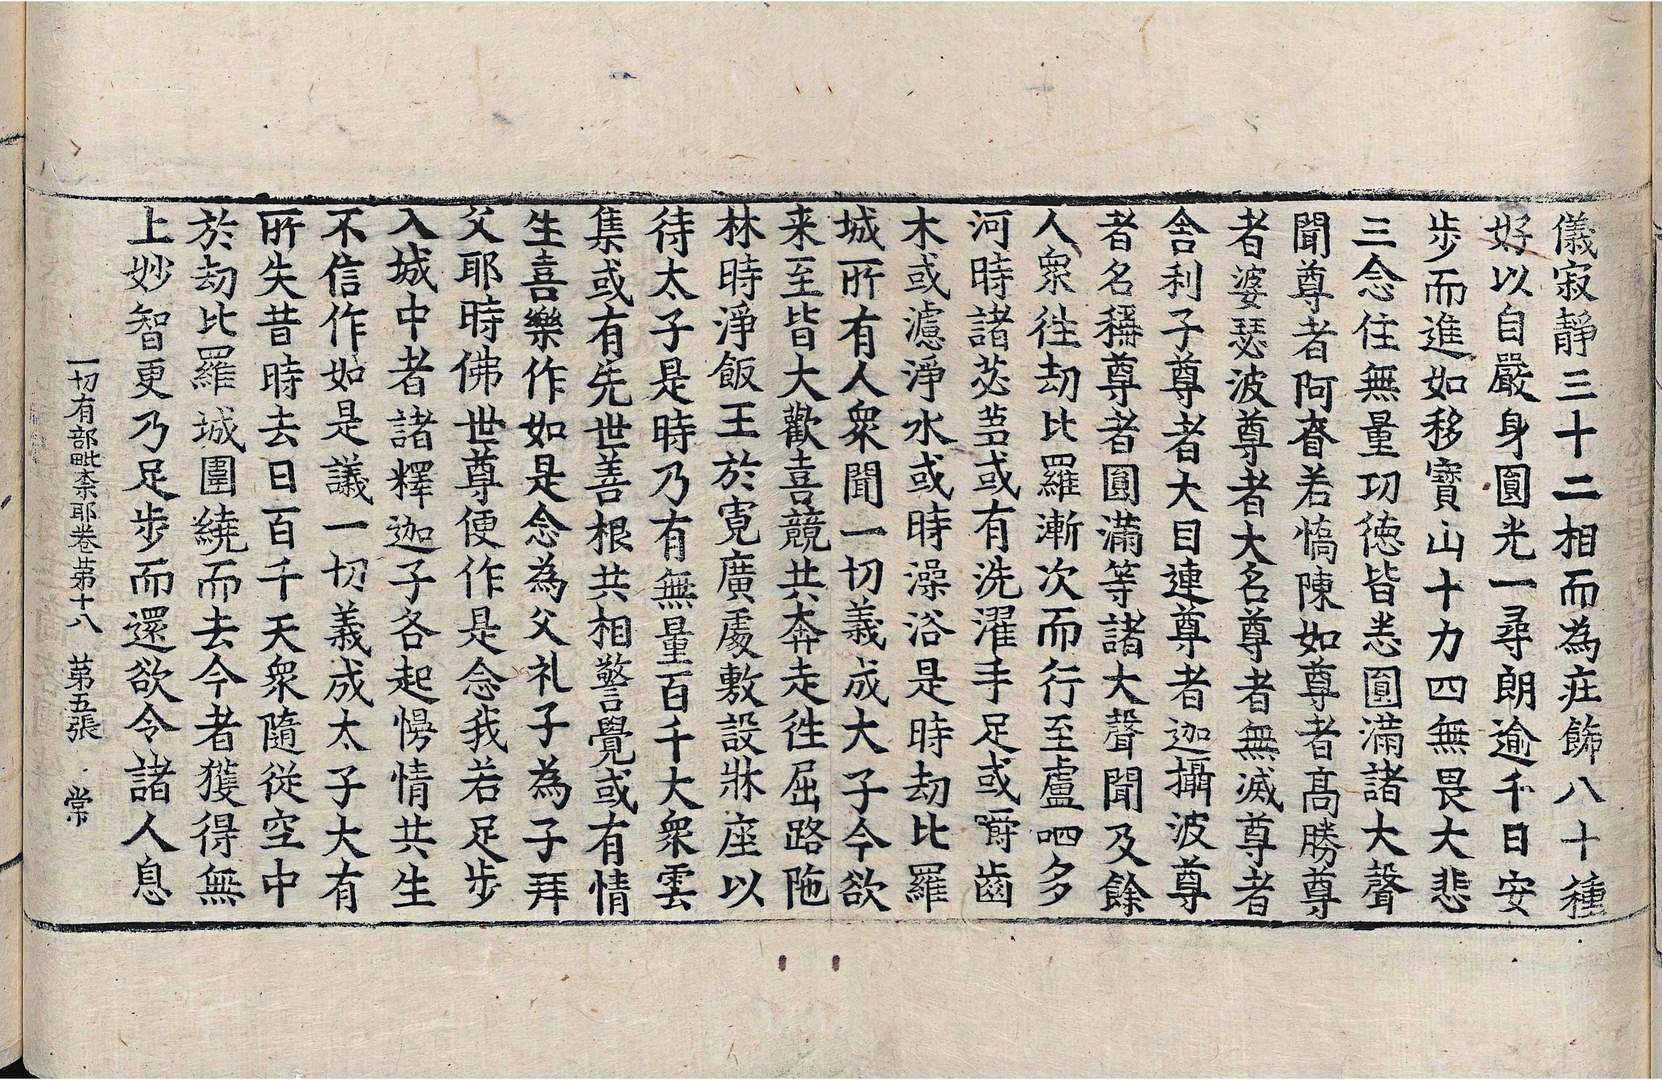 儀寂靜三十二相而為莊飾八十種
好以自嚴身圓光一尋朗逾千日安
步而進如移寶山十力四無畏大悲
三念住無量功德皆悉圓滿諸大聲
聞尊者阿若憍陳如尊者高勝尊
者婆瑟波尊者大名尊者無滅尊者
舍利子尊者大目連尊者迦攝波尊
者名稱尊者圓滿等諸大聲聞及餘
人衆往劫比羅漸次而行至盧呬多
河時諸苾芻或有洗濯手足或嚼齒
木或濾淨水或時澡浴是時劫比羅
城所有人衆聞一切義成太子今欲
来至皆大歡喜競共奔走往屈路陁
林時淨飯王於寬廣處敷設牀座以
待太子是時乃有無量百千大衆雲
集或有先世善根共相警覺或有情
生喜樂作如是念為父礼子為子拜
父耶時佛世尊便作是念我若足步
入城中者諸釋迦子各起慢情共生
不信作如是議一切義成太子大有
所失昔時去日百千天衆隨從空中
於劫比羅城圍繞而去今者獲得無
上妙智更乃足步而還欲令諸人息
一切有部毗柰耶卷第十八 第五張 常